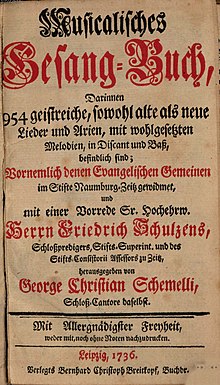 Musicalisches
Gesang-Buch,
Darinnen
954 geistreiche, sowohl alte als neue
Lieder und Arien, mit wohlgesetzten
Melodien, in Discant und Baß,
befindlich sind;
Vornemlich denen Evangelischen Gemeinen
im Stifte Naumburg-Zeitz gewidmet,
und
mit einer Vorrede Sr. Hochehrw.
Herrn Friedrich Schulzens,
Schloßpredigers, Stifts-Superint. und des
Stifts-Consistorii Assessoris zu Zeitz,
herausgegeben von
George Christian Schemelli,
Schloß-Cantore daselbst.
Mit Allergnädigster Freyheit,
weder mit, noch ohne Noten nachzudrucken.
Leipzig, 1736.
Verlegts Bernhard Christoph Breitkopf, Buchdr.